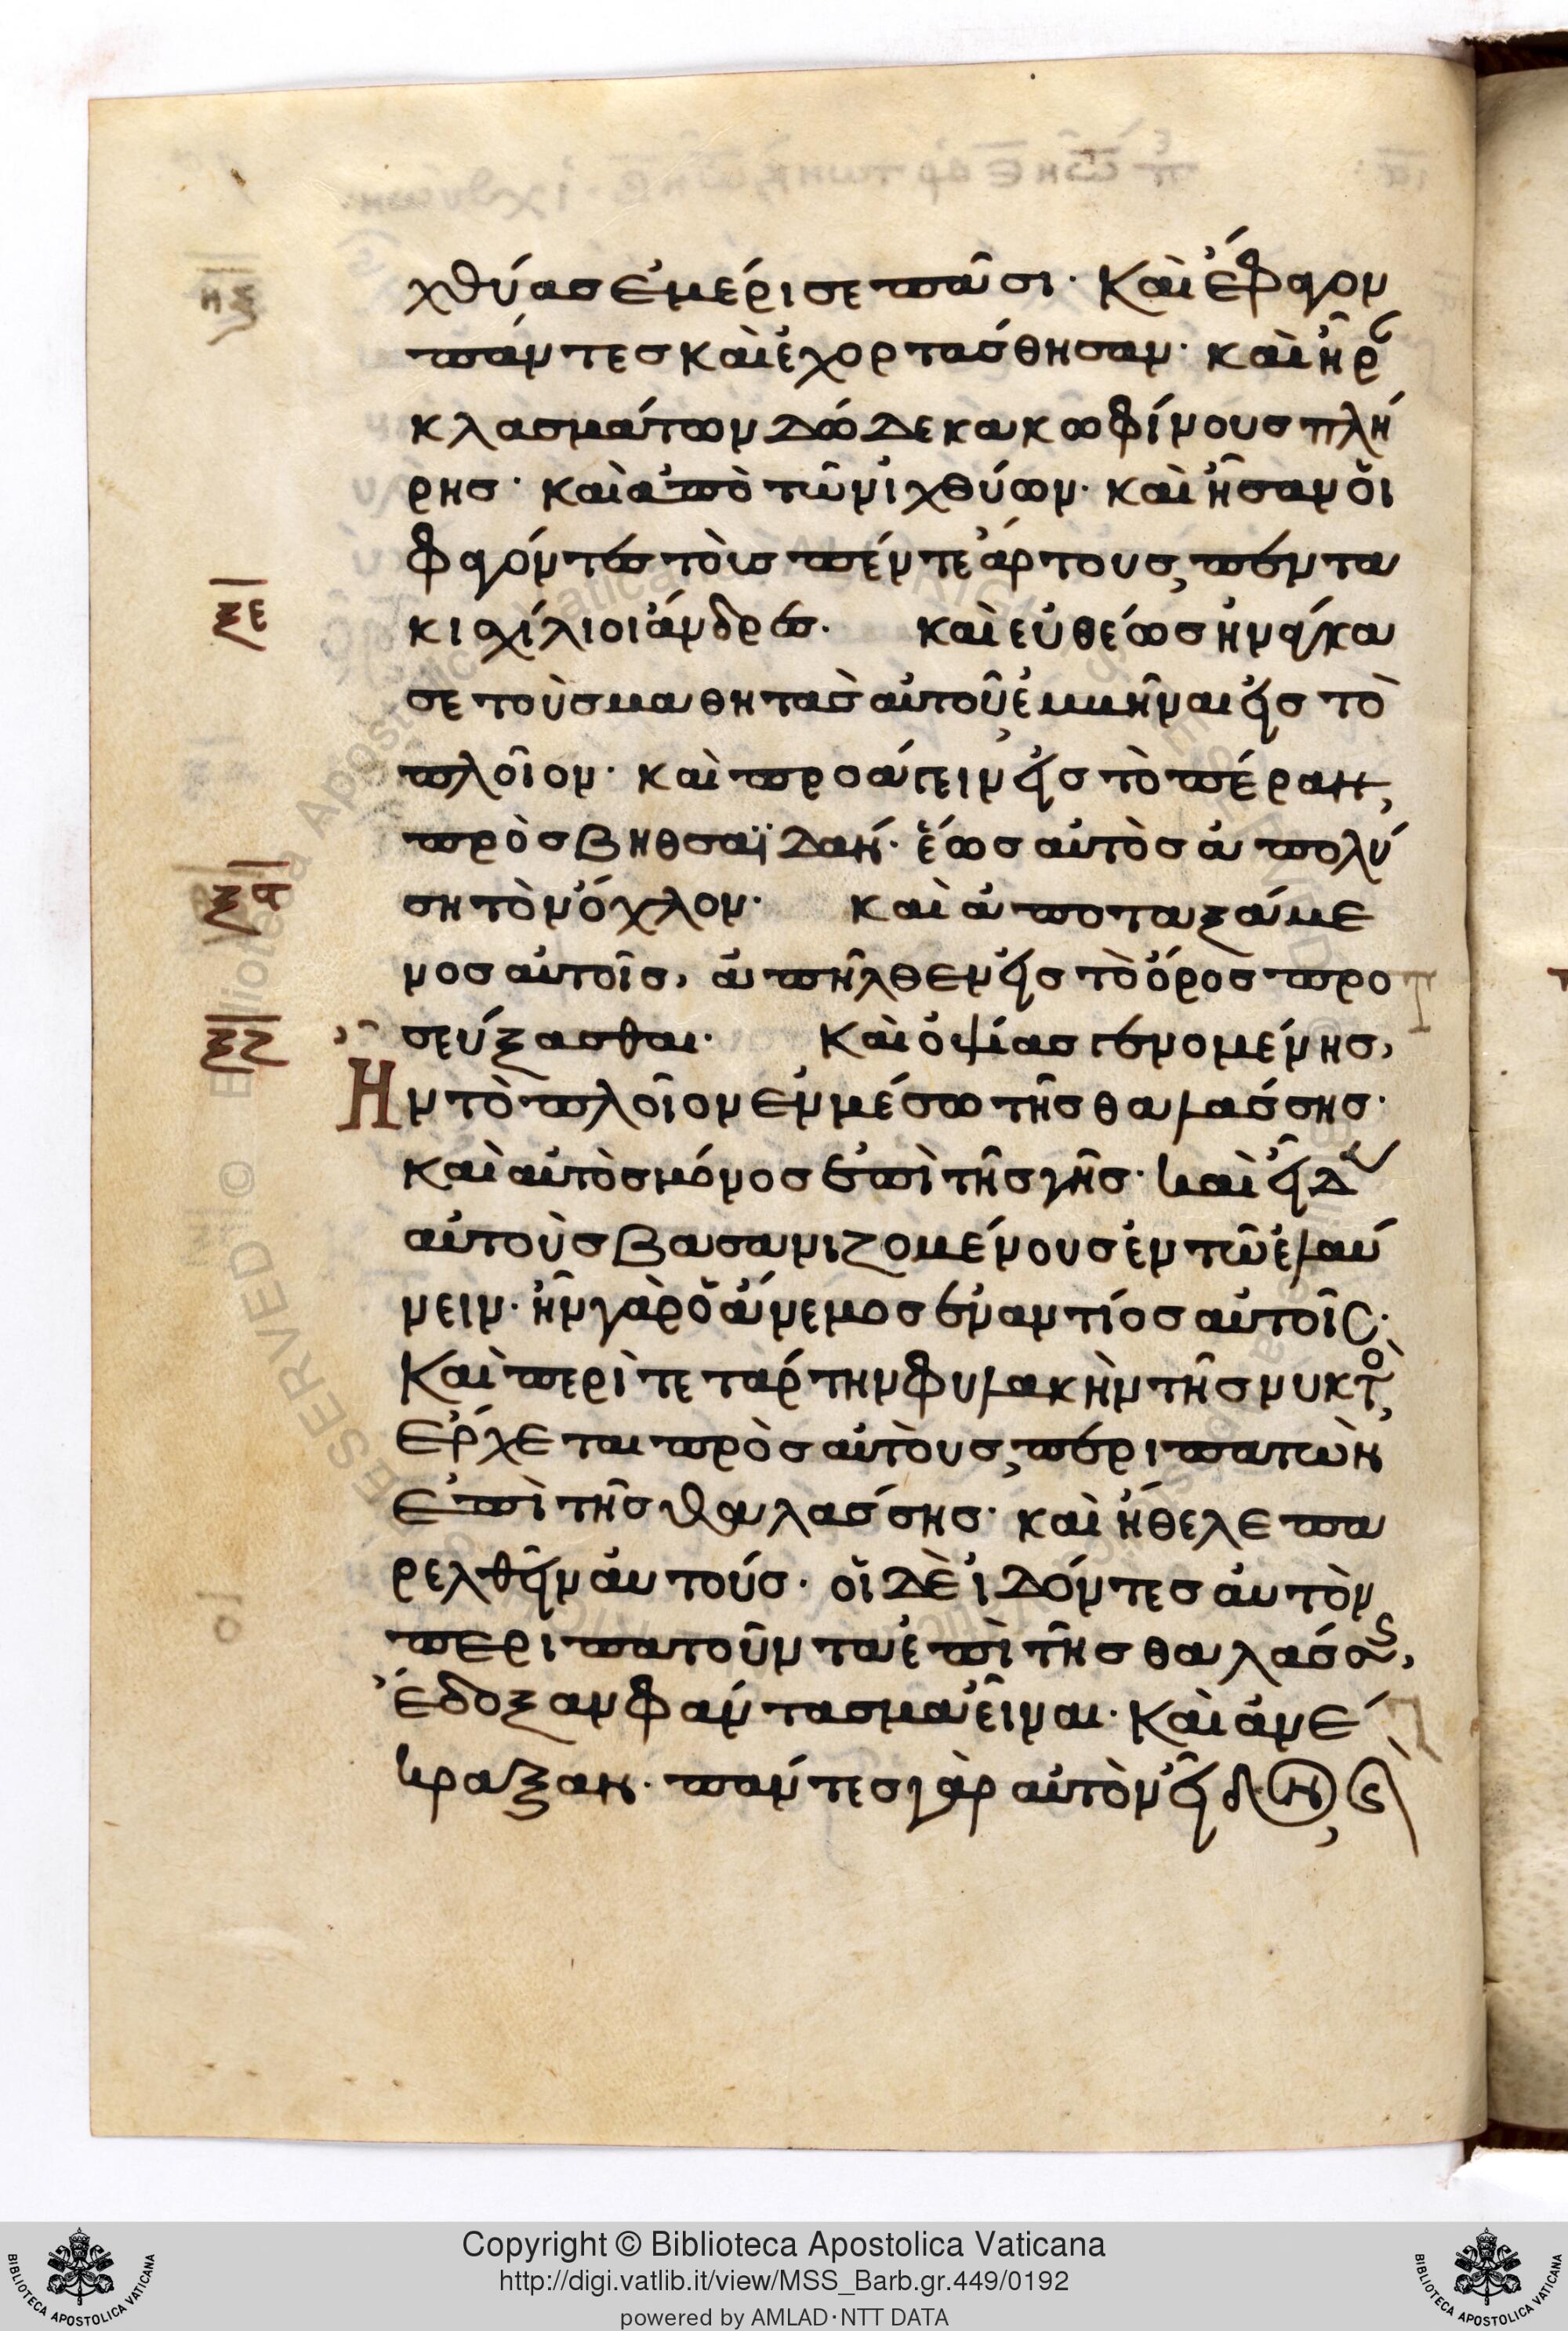 χθύας ἐμέρισε πᾶσι· Καὶ ἔφαγον
πάντες καὶ ἐχορτάσθησαν· καὶ ἦρ
κλασμάτων δώδεκα κωφίνους πλή
ρης· καὶ ἀπὸ τῶν ἰχθύων· καὶ ἦσαν οἱ
φαγόντες τοὺς πέντε ἄρτους, πεντα
κισχίλιοι ἄνδρες. καὶ εὐθέως ἠνάγκα
ξε
σε τοὺς μαθητὰς αὐτοῦ, ἐμμῆναι εἰς τὸ
πλοῖον· καὶ προάγειν εἰς τὸ πέραν,
πρὸς βηθσαϊδάν· ἕως αὐτὸς ἀπολύ
ση τὸν ὄχλον· καὶ ἀποταξάμε
ξϛ
νος αὐτοῖς, ἀπῆλθεν εἰς τὸ ὄρος προ
σεύξασθαι· Καὶ ὀψίας γενομένης,
ξζ
Ἦν τὸ πλοῖον ἐν μέσω τῆς θαλάσσης·
καὶ αὐτὸς μόνος ἐπὶ τῆς γῆς· καὶ εἶδ
αὐτοὺς βασανιζομένους ἐν τῶ ἐλαύ
νειν· ἦν γὰρ ὁ ἄνεμος ἐναντίος αὐτοῖς·
Καὶ περὶ τετάρτην φυλακὴν τῆς νυκτὸ,
ἔρχεται πρὸς αὐτοὺς, περιπατῶν
ἐπὶ τῆς θαλάσσης· καὶ ἤθελε πα
ρελθεῖν αὐτούς· οἱ δὲ ἰδόντες αὐτὸν
περιπατοῦντα ἐπὶ τῆς θαλάσσης,
ἔδοξαν φάντασμα εἶναι· Καὶ ἀνέ
κραξαν· πάντες γὰρ αὐτὸν εἶδον,
Copyright © Biblioteca Apostolica Vaticana
http://digi.vatlib.it/view/MSS_Barb.gr.449/0192
powered by AMLAD·NTT DATA
BIBLIOTECA APOSTOLICA VATICANA
BIBLIOTECA APOSTOLICA VATICANA